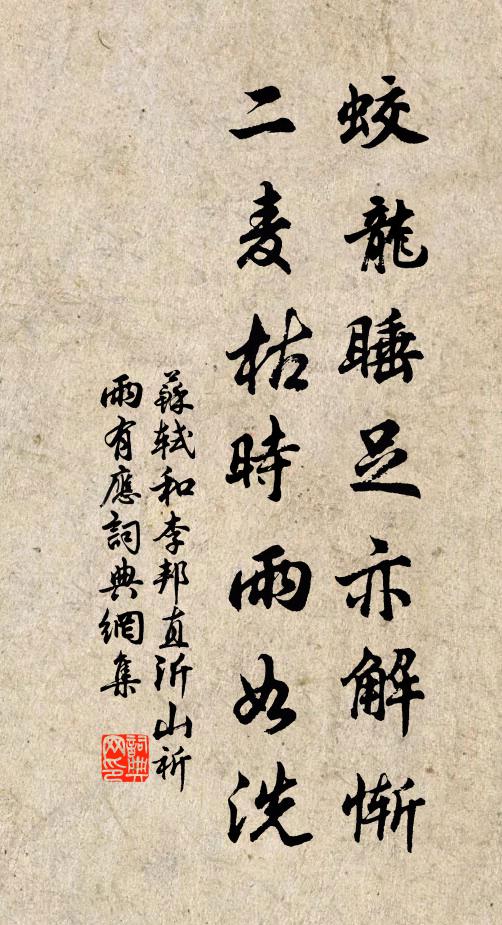 蛟龍睡足亦解慚
二麦枯時雨如洗
蘇軾和李邦直沂山祈
雨有應詞典網集
詞典
网印